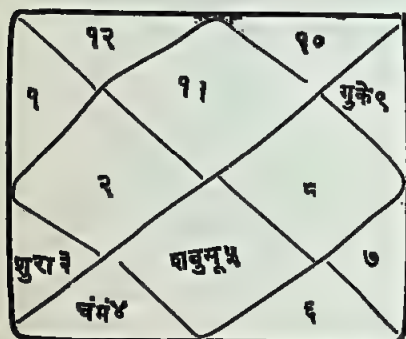 १२ १०
११
१ गुके९
२ ८
शुरा३ शबुसू५ ७
चंमं४ ६